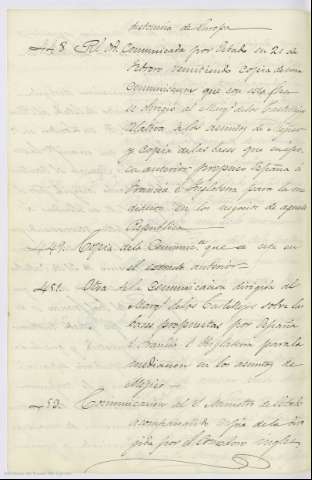 historia de Europa
448. Rl. Or. Comunicada por Estado en 21 de
Febrero remitiendo copia de una
comunicacion que con esta fecha
se dirigió al Marq. de los Castillejos
relativa a los asuntos de Mejico
y copia de las bases que en época
anterior propuso España á
Francia é Inglaterra para la me
diacion en los negocios de aquella
Republica
449. Copia de la Comunicon. que se cita en
el numero anterior
451. Otra de la comunicacion dirigida al
Marq. de los Castillejos sobre las
bases propuestas por España
á Francia é Inglaterra para la
mediacion en los asuntos de
Mejico
453. Comunicacion al Sr Ministro de Estado
acompañando copia de la diri
gida por el Consul ingles